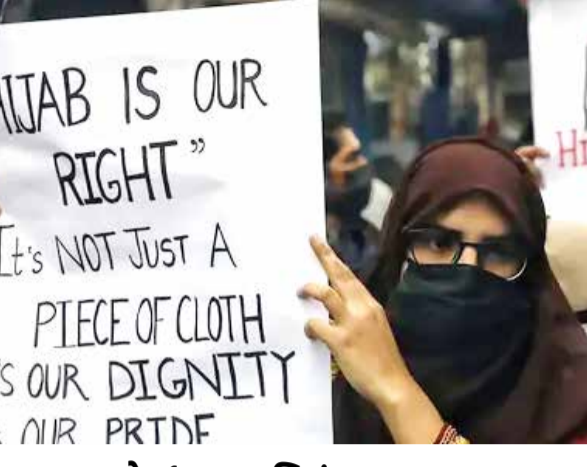 HIJAB IS OUR
RIGHT"
It's NOT JUST A
PIECE OF CLOTH
S OUR DIGNITY
OUR PRIDE
HI